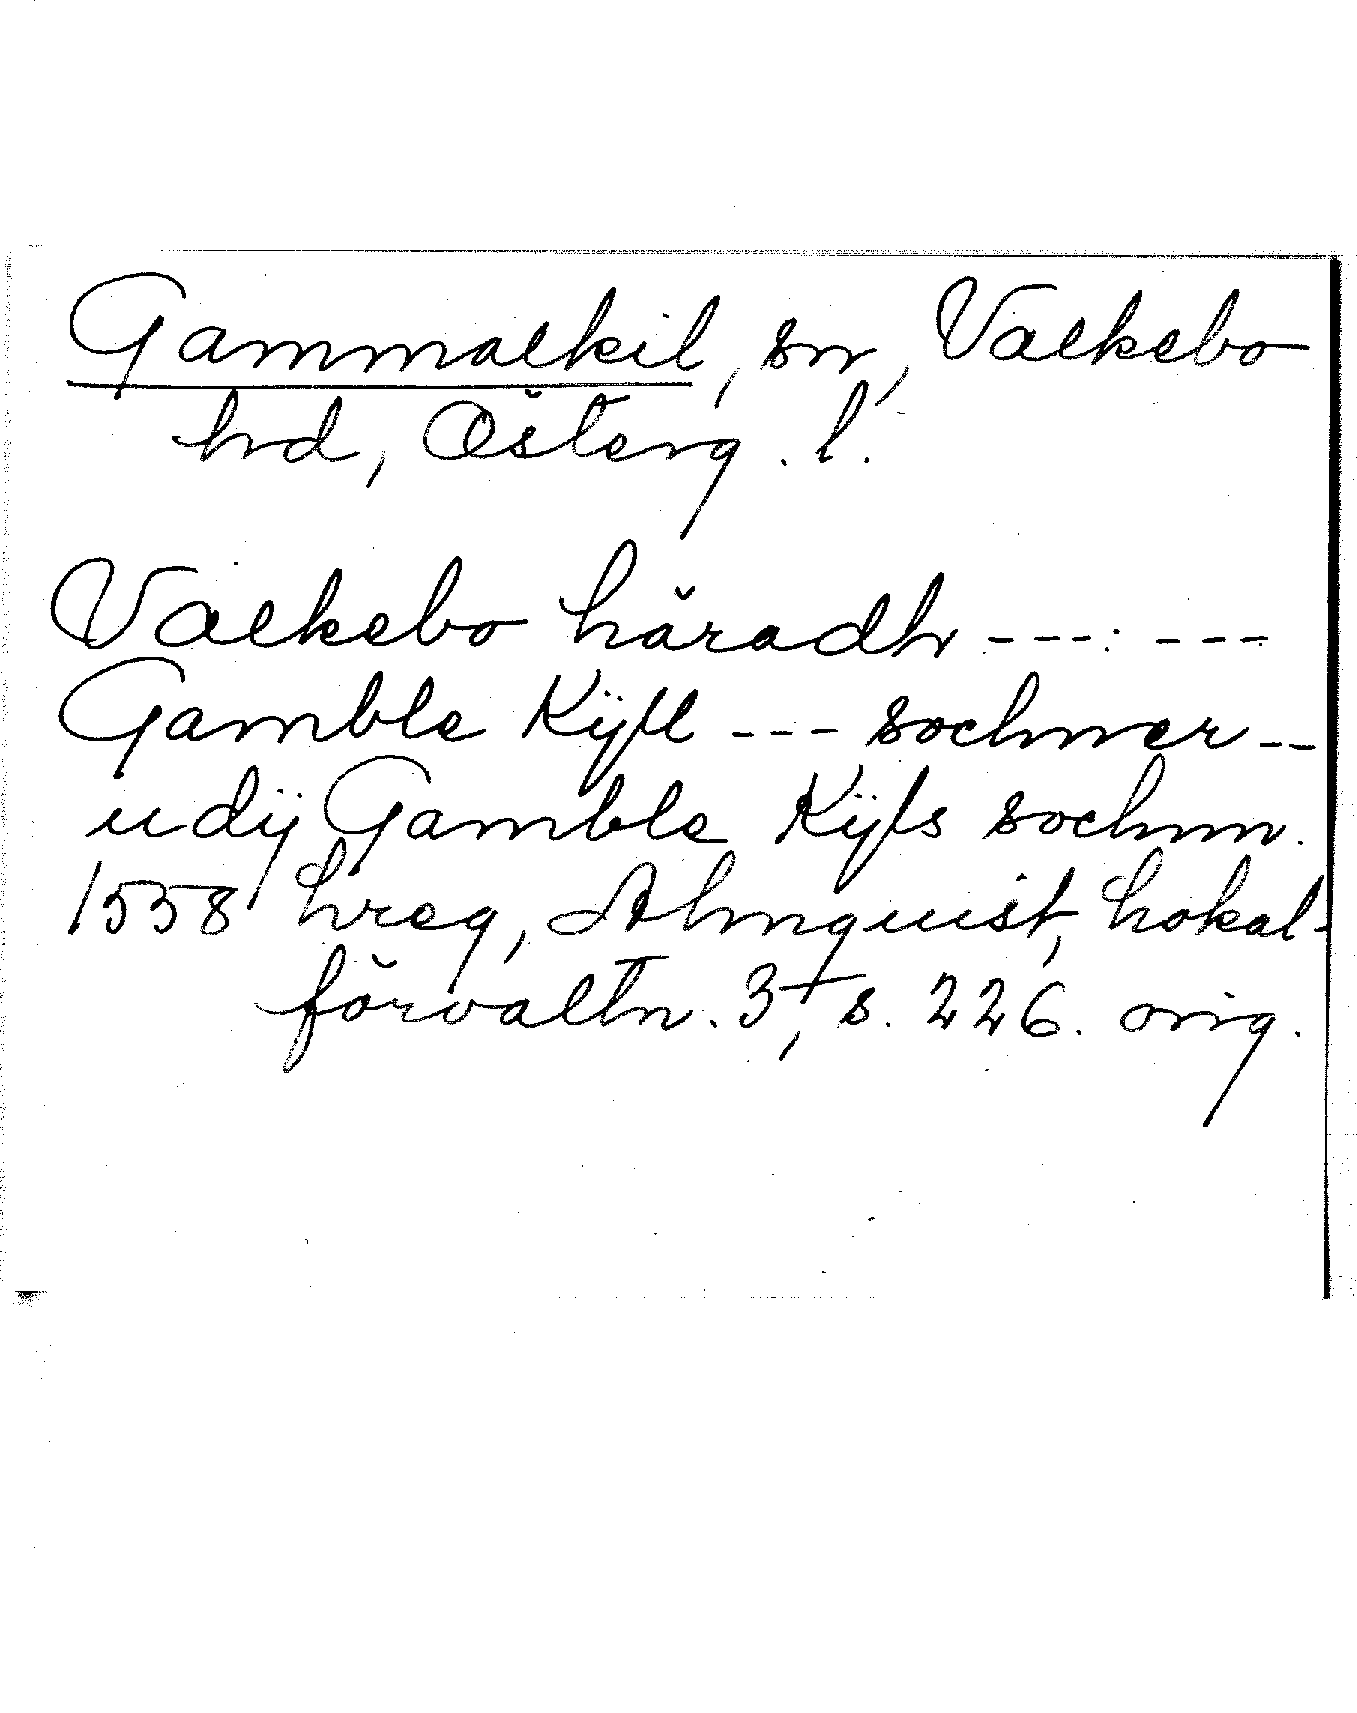 Gammalkil, sn, Valkebo
hrd, Österg. l.
Valkebo häradh ---: ---
Gamble Kÿll --- sochner --
udÿ Gamble Kÿls sochnn.
1558 hreg, Almquist, Lokal-
förvaltn. 3, s. 226. orig.